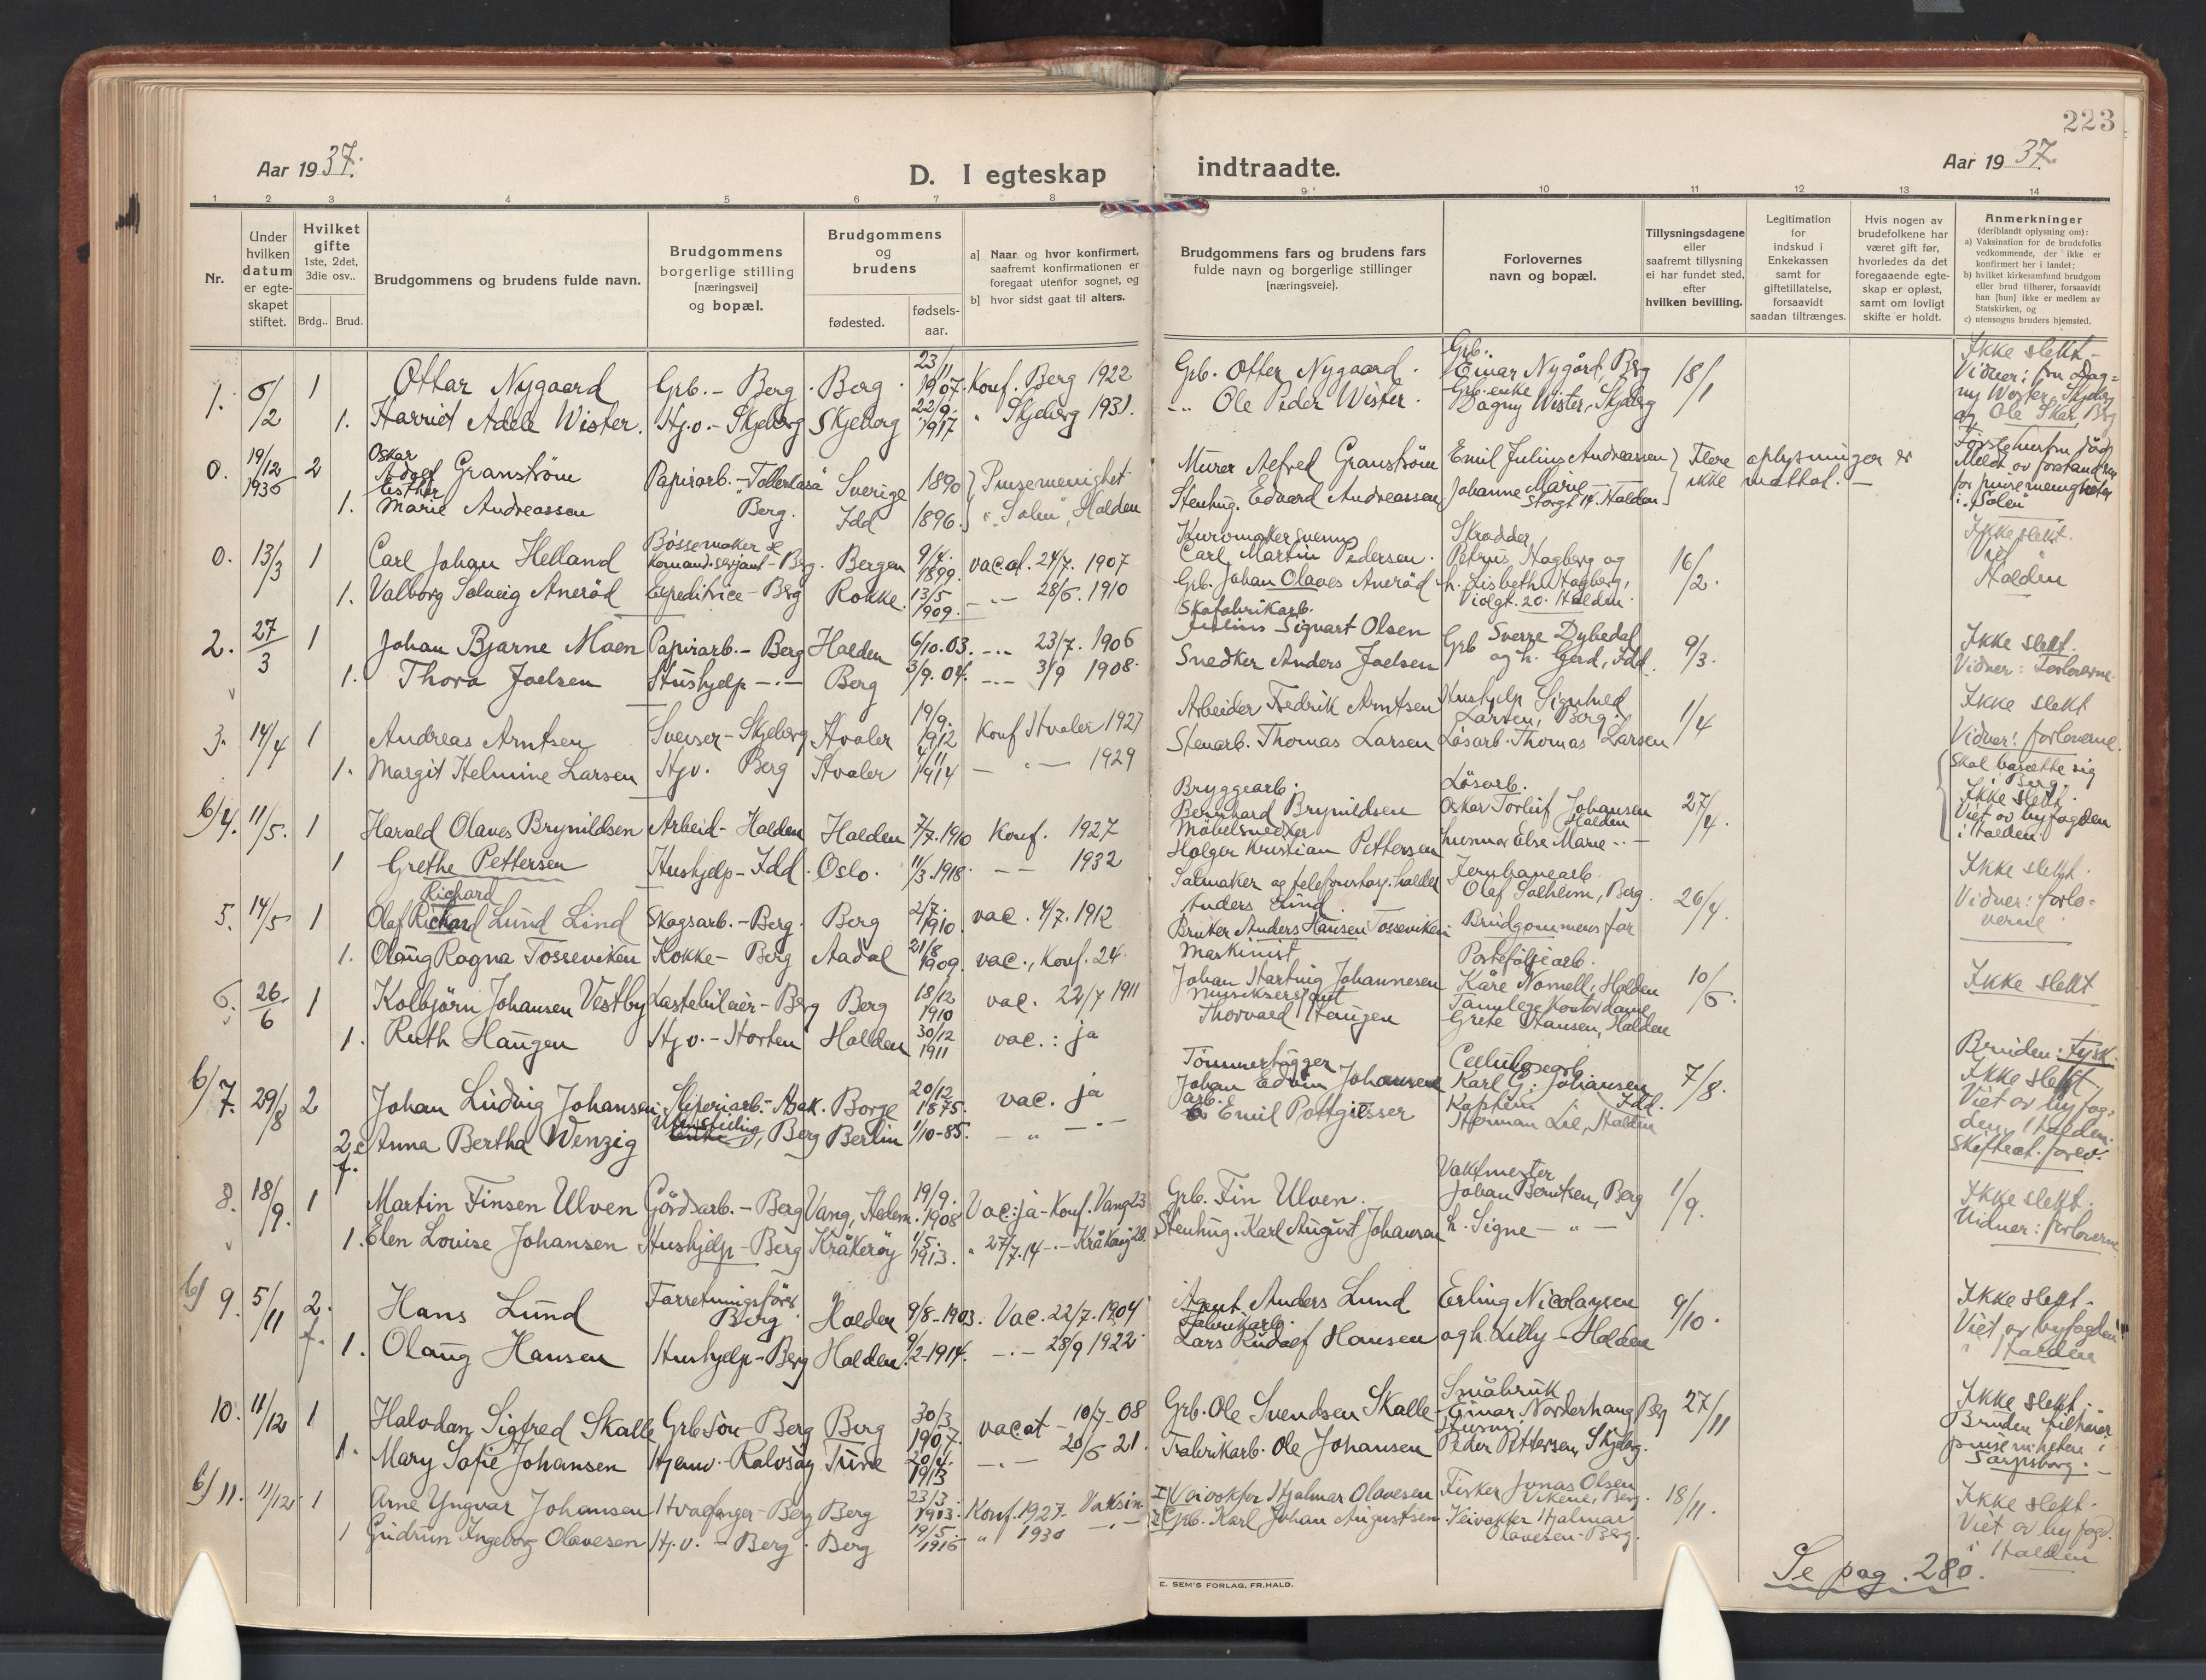 223
Aar 1937.
D. I egteskap
indtraadte.
Aar 1937.
1. 2 3 4 5 6 7 8 9 10 11 12 13 14
Nr.
Under hvilken datum er egteskapet stiftet.
Hvilket gifte 1ste, 2det, 3die osv..
Brdg.. Brud.
Brudgommens og brudens fulde navn.
Brudgommens borgerlige stilling [næringsvei] og bopæl.
Brudgommens og brudens
fødested.
fødsels-aar.
a] Naar og hvor konfirmert, saafremt konfirmationen er foregaat utenfor sognet, og
b] hvor sidst gaat til alters.
Brudgommens fars og brudens fars fulde navn og borgerlige stillinger [næringsveie].
Forlovernes navn og bopæl.
Tillysningsdagene eller saafremt tillysning ei har fundet sted, efter hvilken bevilling.
Legitimation for indskud i Enkekassen samt for giftetillatelse, forsaavidt saadan tiltrænges.
Hvis nogen av brudefolkene har været gift før, hvorledes da det foregaaende egteskap er opløst, samt om lovligt skifte er holdt.
Anmerkninger (deriblandt oplysning om):
a) Vaksination for de brudefolks vedkommende, der ikke er konfirmert her i landet;
b) hvilket kirkesamfund brudgom eller brud tilhører, forsaavidt han [hun] ikke er medlem av Statskirken, og
c) utensogns bruders hjemsted.
1. 6/2 1 Ottar Nygaard Grb. - Berg. Berg. 23/11 1907. Konf. Berg 1922 Grb. Otter Nygaard. Grb. Einar Nygård, Berg 18/1 Ikke slekt -
1. Harriet Adele Wister. Hj.v. - Skjeberg Skjeberg 22/9. 1917 " Skjeberg 1931. -"- Ole Peder Wister. Grb. enke Dagny Wister, Skjeberg
Vidner: fru Dagny Wister, Skjeberg og Ole Skar, Berg
0. 19/12 1936 2 Oskar Adolf Granström Papirarb. - Sverige 1890 Pinsemenighet Murer Alfred Granström Emil Julius Andreassen Flere oplysninger er ikke mottat. -
1. Esther Marie Andreassen Berg. Idd 1896. "Salen", Halden Stenhug. Edvard Andreassen Johanne Marie -"- Storgt 14. Halden
Meldt av forstandren for pinsemenigheten i "Salen"
0. 13/3 1 Carl Johan Helland Bössemaker & Komand.serjant - Berg. Bergen 9/4. 1899. vacat. 24/7. 1907 Kurvmakersvenn Carl Martin Pedersen. Skrædder Petrus Hagberg og 16/2. Ikke slekt.
1. Valborg Solveig Anerød Expeditrice - Berg Rokke. 13/5 1909. -"- 28/6. 1910 Grb. Johan Olaves Anerød h. Lisbeth Hagberg, Violgt. 20. Halden. Halden
2. 27/3 1 Johan Bjarne Moen Papirarb. - Berg Halden 6/10.03. -"- 23/7. 1906 Skofabrikarb. Julius Sigvart Olsen Grb Sverre Dybedal 9/3. Ikke slekt.
1. Thora Joelsen Hushjelp -"- Berg 3/9.04. -"- 3/9 1908. Snedker Anders Joelsen og h. Gerd, Idd. Vidner: Forloverne.
3. 14/4 1 Andreas Arntsen Sveiser - Skjeberg Hvaler 19/9. 1912 Konf Hvaler 1927 Arbeider Fredrik Arntsen Hushjelp Signhild Larsen, Berg. 1/4 Ikke slekt
1. Margit Helmine Larsen Hj.v. Berg Hvaler 4/11 1914 -"- 1929 Stenarb. Thomas Larsen Løsarb. Thomas Larsen Vidner: forloverne.
Skal bosætte sig i Berg.
b/4. 11/5. 1 Harald Olaves Brynildsen Arbeid. Halden Halden 7/7.1910 Konf. 1927 Bryggearb. Bernhard Brynildsen Løsarb. Oskar Torleif Johansen Halden 27/4. Ikke slekt.
1 Grethe Pettersen Hushjelp - Idd. Oslo. 11/3.1918. -"- 1932 Møbelsnedker Holger Kristian Pettersen hustru Else Marie -"- Viet av byfogden i Halden.
5. 14/5 1 Olaf Richard Richard Lund Lind Skogsarb. - Berg. Berg 2/7. 1910. vac. 4/7. 1912 Salmaker og telefonstasj. holder Anders Lund. Jernbanearb. Olaf Solheim, Berg. 26/4. Ikke slekt.
1. Olaug Ragna Tosseviken Kokke - Berg Aadal 21/8 1909. vac., Konf. 24. Bruker Anders Hansen Tosseviken Brudgommens far Vidner: forloverne
6. 26/6 1 Kolbjørn Johansen Vestby Lastebileier - Berg Berg 18/12 1910 vac. 22/7 1911 Maskinist Johan Hartvig Johannesen Porteføljearb. Kåre Nomell, Halden 10/6. Ikke slekt
1. Ruth Haugen Hj.v. - Horten Halden 30/12 1911 vac.: ja Musikserjant Thorvald Haugen Tannlege Kontordame Grete Hansen, Halden
b/7. 29/8 2 Johan Ludvig Johansen Sliperiarb. - Asak. Borge 20/12 1875. vac. ja Tömmerhögger Johan Edvin Johansen Cellulosearb. Karl G. Johansen Idd. 7/8. Bruden: tysk. Ikke slekt
2. Anna Bertha Wenzig Berg Berlin 1/10-85. -"- Arb. Emil Pottgiesser Kaptein Herman Lie, Halden Viet av byfogden i Halden. Skifteat. forev.
8. 18/9. 1 Martin Finsen Ulven Gårdsarb. - Berg Vang, Hedem. 19/9. 1908 Vac: ja - Konf. Vang 23 Grb. Fin Ulven. Vaktmester Johan Berntsen, Berg 1/9. Ikke slekt.
1. Elen Louise Johansen Hushjelp - Berg Kråkerøy 1/5. 1913. " 27/7.14 -"- Kråkerøy 28. Stenhug. Karl August Johansen h. Signe -"- Vidner: forloverne
b/ 9. 5/11 2. f. Hans Lund Forretningsfører Berg Halden 9/8-1903. Vac. 22/7. 1904 Agent Anders Lund Erling Nicolaysen 9/10. Ikke slekt.
1. Olaug Hansen Hushjelp - Berg Halden. 9/2-1914. -"- 28/9 1922. Fabrikarb. Lars Rudolf Hansen og h. Lilly - Halden Viet av byfogden i Halden
10. 11/12 1 Halvdan Sigfred Skalle Grb sön - Berg Berg 30/3 1907. vacat - 10/7-08 Grb. Ole Svendsen Skalle Småbruk. Einar Norderhaug Berg 27/11 Ikke slekt.
1. Mary Sofie Johansen Hjemv. - Rolvsøy Tune 20/4. 1913 -"- 20/6 21. Fabrikarb. Ole Johansen Peder Pettersen, Skjeberg. Bruden tilhører pinsemenheten i Sarpsborg.
b/ 11. 11/12. 1 Arne Yngvar Johansen Hvalfanger - Berg Berg 23/3. 1913. Konf. 1927. Vaksin. Veivokter Hjalmar Olavesen Fisker Jonas Olsen Vikene, Berg. 18/11. Ikke slekt.
1 Gudrun Ingeborg Olavesen Hj.v. - Berg. Berg 19/5. 1916 " 1930 -"- Grb. Karl Johan Augustsen. Veivokter Hjalmar Olavesen - Berg. Viet av byfogd. i Halden
Se pag. 280.
E. SEM'S FORLAG, FR.HALD.